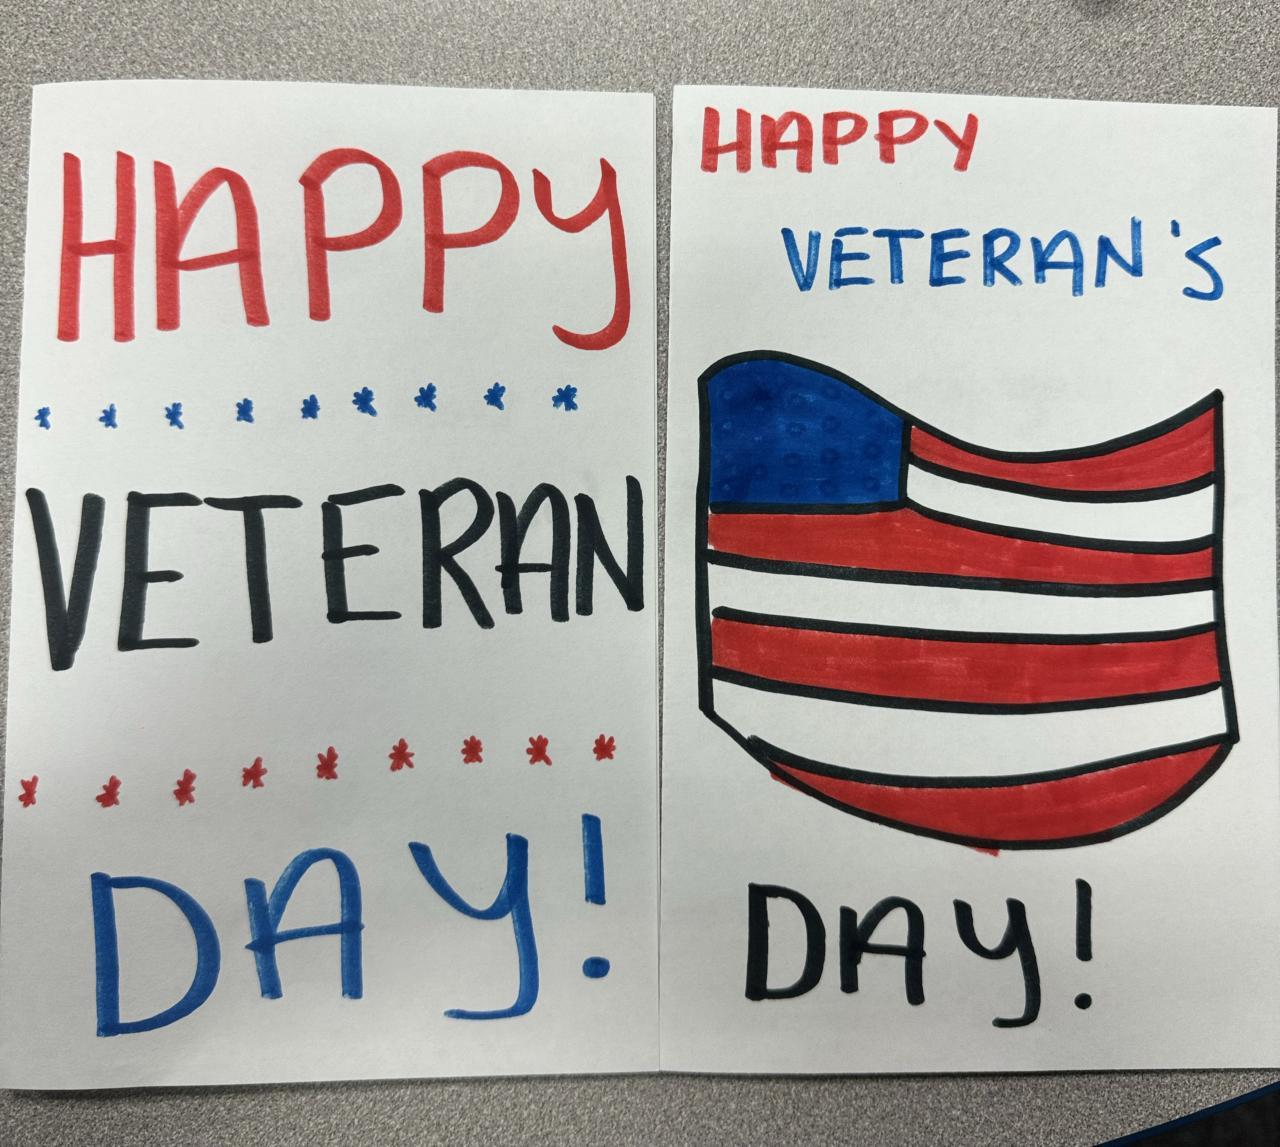 HAPPY
VETERAN
DAY!
HAPPY
VETERAN'S
DAY!